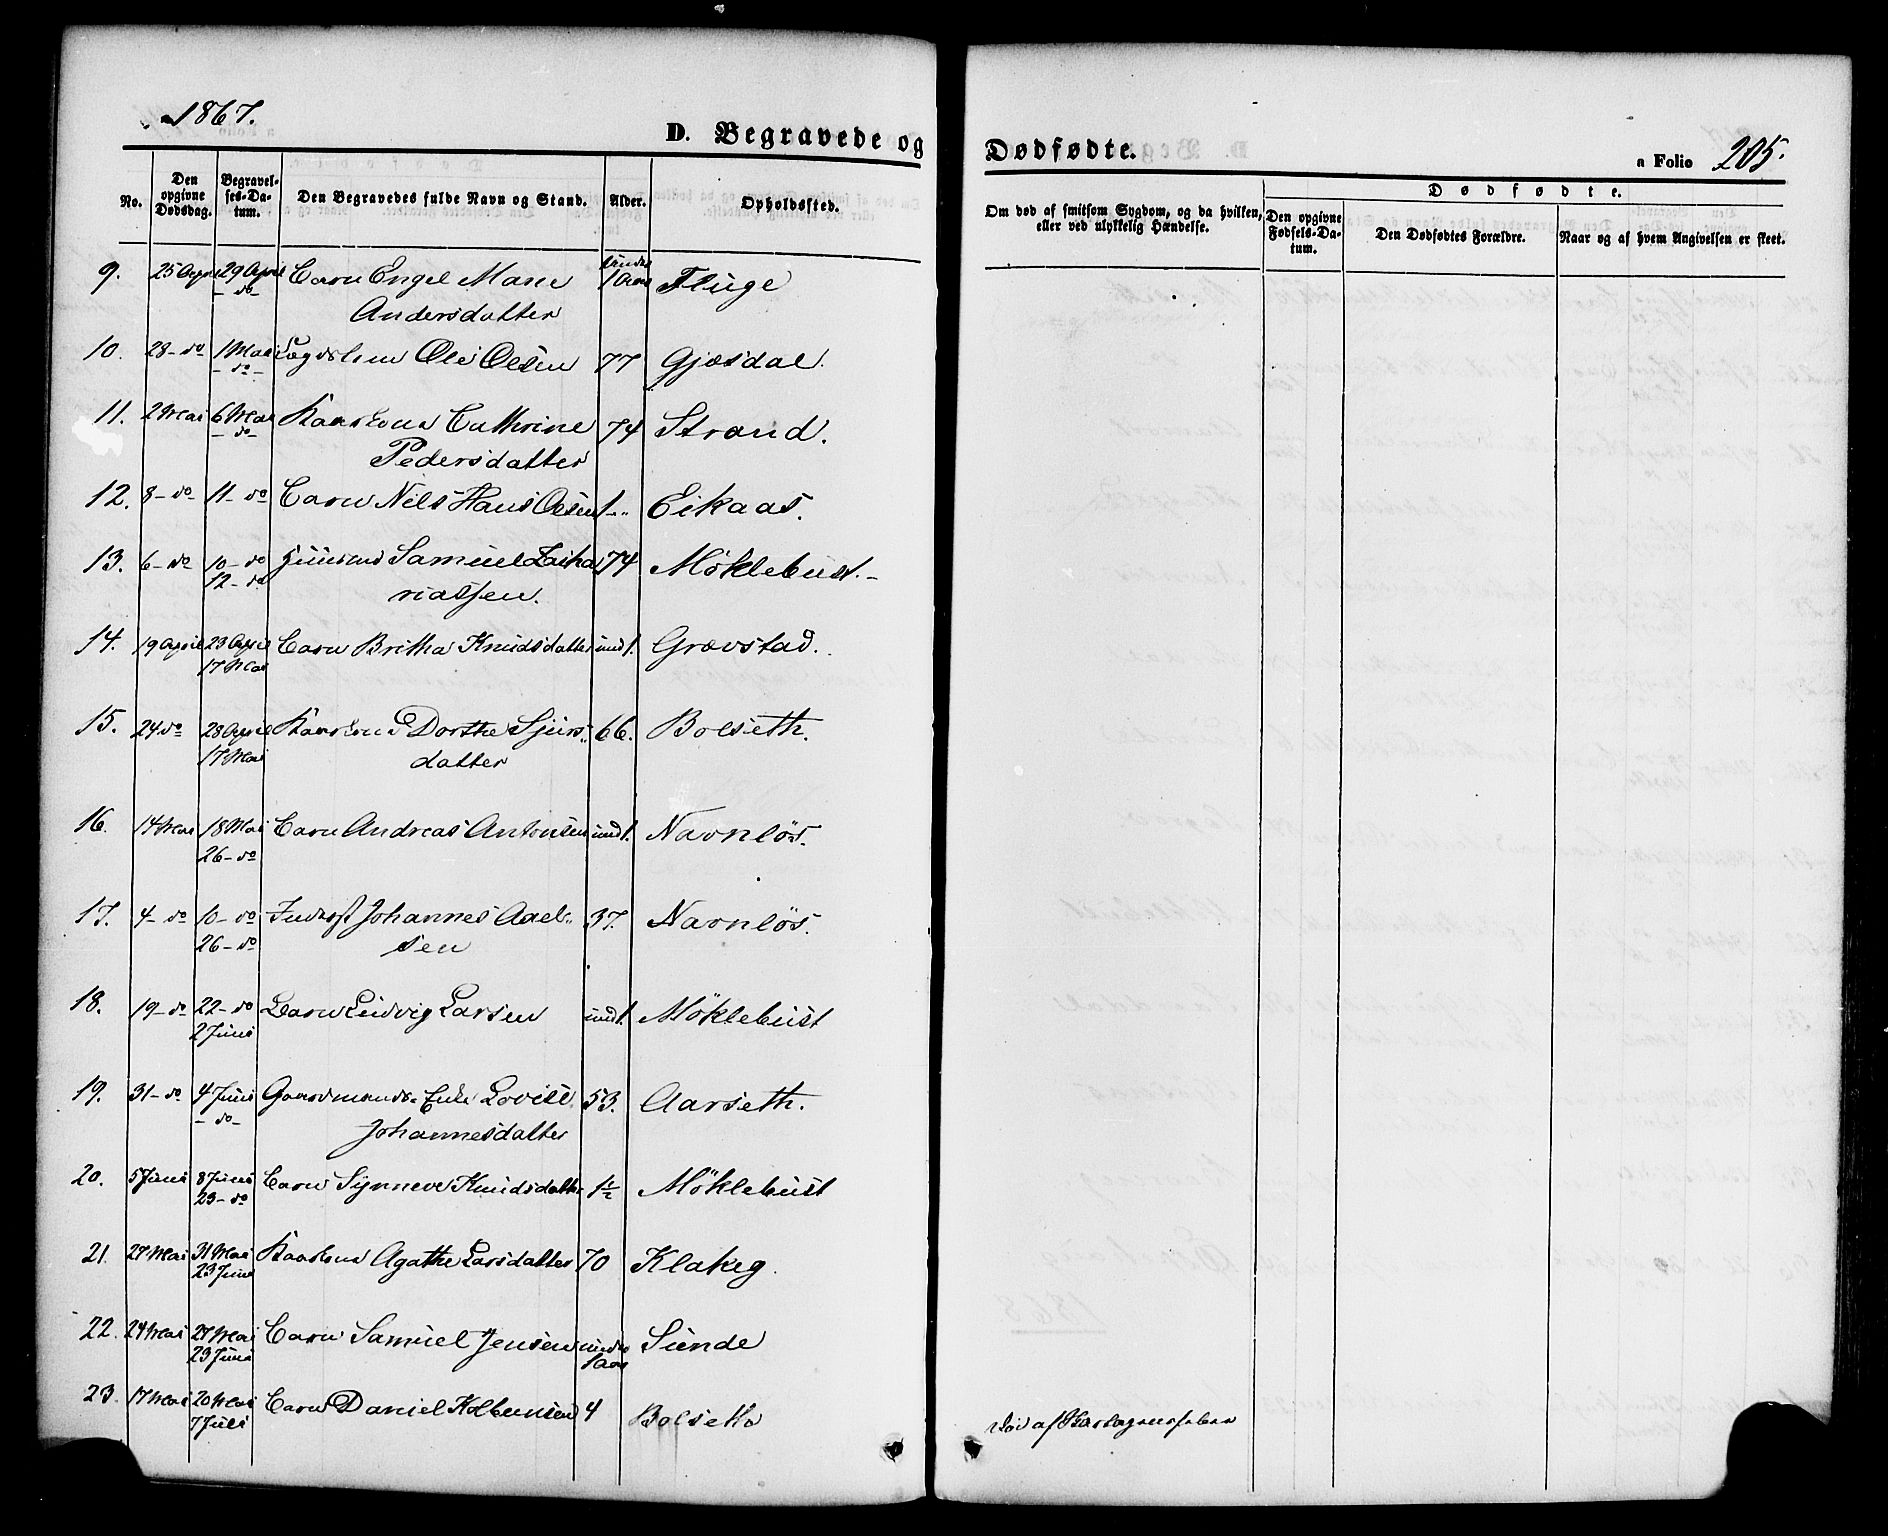 1867.
D. Begravede og Dødfødte.
a Folio 205.
No.
Den opgivne Dødsdag.
Begravelses-Datum.
Den Begravedes fulde Navn og Stand.
Alder.
Opholdssted.
Om død af smitsom Sygdom, og da hvilken, eller ved ulykkelig Hændelse.
Dødfødte.
Den opgivne Fødsels-Datum.
Den Dødfødtes Forældre.
Naar og af hvem Angivelsen er skeet.
9. 25 April 29 April Barn Engel Marie under 1 Aar Fluge
- do - Andersdatter
10. 28 - do 1 Mai Lægdslem Ole Olsen 77 Gjøsdal.
- do -
11. 2 Mai 6 Mai Kaarkone Cathrine 74 Strand.
- do - Pedersdatter
12. 8 - do 11 - do Barn Nils Hans Olsen 1 - Eikaas.
13. 6 - do 10 - do Huusmd Samuel Zacha 74 Möklebust. -
12 - do riassen.
14. 19 April 23 April Barn Britha Knudsdatter und 1. Grøvstad.
17 Mai
15. 24 do 28 April Kaarkone Dorthe Sjurs 66. Bolseth.
17 Mai datter
16. 14 Mai 18 Mai Barn Andreas Antonsen und 1. Navnlös.
26 - do
17. 4 - do 10 - do Inderst Johannes Aael 37. Navnlös.
26 - do sen
18. 19 - do 22 - do Barn Ludvig Larsen und 1. Möklebust
2 Juni
19. 31 - do 4 Juni Gaardmands Enke Lovise 53. Aarseth.
- do - Johannesdatter
20. 5 Juni 8 Juni Barn Synneve Knudsdatter 1 1/2 Möklebust
23 - do
21. 27 Mai 31 Mai Kaarkone Agathe Larsdatter 70 Klakeg.
23 Juni
22. 24 Mai 27 Mai Barn Samuel Jensen under 1 Aar Sunde
23 Juni
23. 17 Mai 20 Mai Barn Daniel Kolbensen 4 Bolseth Död af Skarlagensfeber
7 Juli